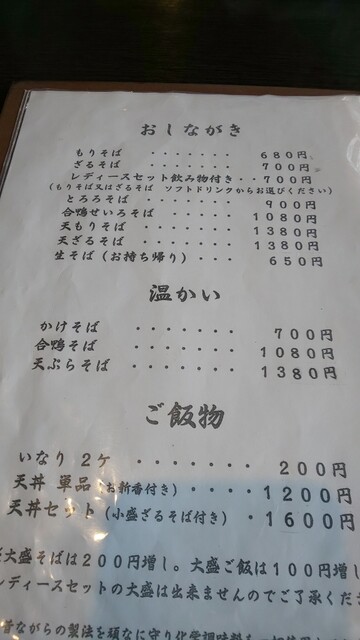 おしながき
もりそば ・・・・・・・ 680円
ざるそば ・・・・・・・ 700円
レディースセット飲み物付き・・700円
(もりそば又はざるそば ソフトドリンクからお選びください)
とろろそば ・・・・・・・ 900円
合鴨せいろそば ・・・・・ 1080円
天もりそば ・・・・・・・ 1380円
天ざるそば ・・・・・・・ 1380円
生そば(お持ち帰り)・・・・ 650円
温かい
かけそば ・・・・・・・ 700円
合鴨そば ・・・・・・・ 1080円
天ぷらそば ・・・・・・ 1380円
ご飯物
いなり 2ケ ・・・・・・・ 200円
天丼 単品(お新香付き)・・・・1200円
天丼セット(小盛ざるそば付き) ・1600円
大盛そばは200円増し。大盛ご飯は100円増し
レディースセットの大盛は出来ませんのでご了承くださ
昔ながらの製法を頑なに守り化学調味料を